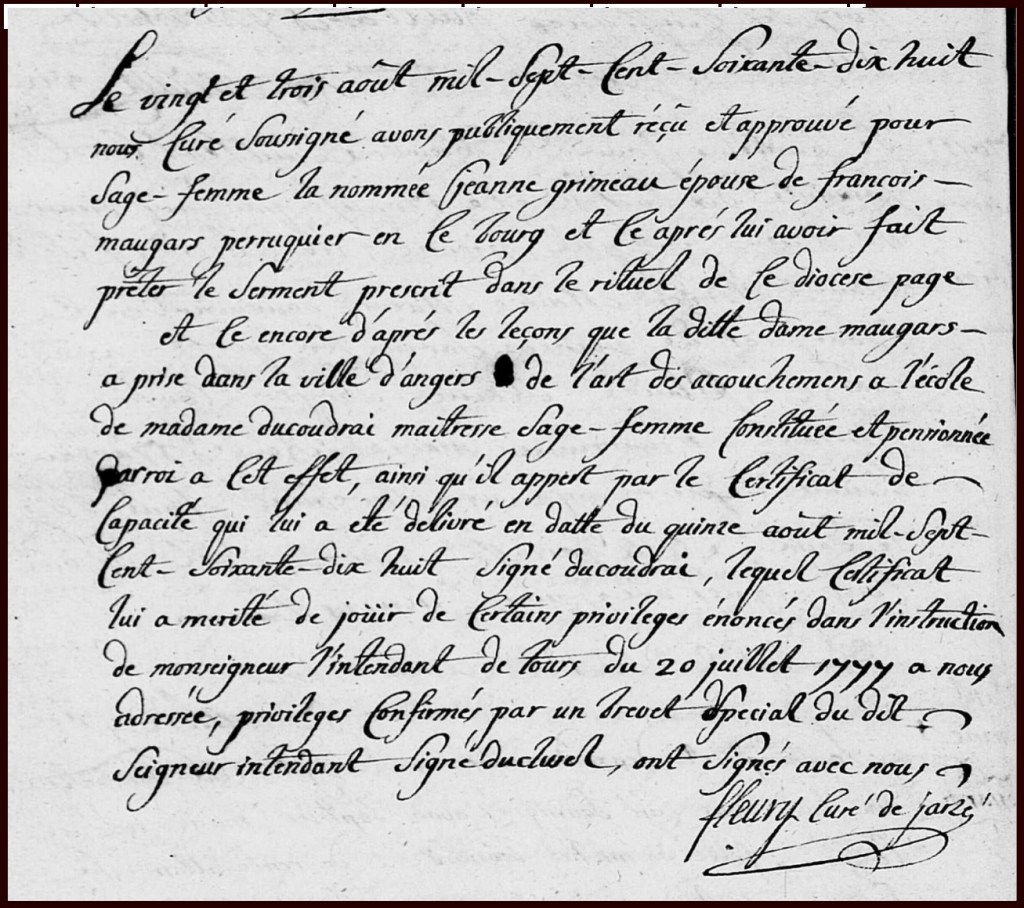 Le vingt et trois août mil-Sept-Cent-Soixante-dix huit
nous Curé Soussigné avons publiquement réçû et approuvé pour
Sage-femme la nommée jeanne grimeau épouse de françois-
maugars perruquier en Ce bourg et Ce aprés lui avoir fait
prêter le Serment prescrit dans le rituel de Ce diocese page
et Ce encore d'aprés les leçons que la ditte dame maugars-
a prise dans la ville d'angers de l'art des accouchemens a l'école
de madame ducoudrai maitresse Sage-femme Constituée et pensionnée
par roi a Cet effet, ainsi qu'il appert par le Certificat de
Capacité qui lui a eté délivré en datte du quinze août mil-Sept-
Cent-Soixante-dix huit Signé ducoudrai, lequel Certificat
lui a merité de joüir de Certains privileges énoncés dans l'instruction
de monseigneur l'intendant de tours du 20 juillet 1777 a nous
adressée, privileges Confirmés par un brevet Special du dit
Seigneur intendant Signé ducluzel, ont Signés avec nous
fleury Curé de jarzé